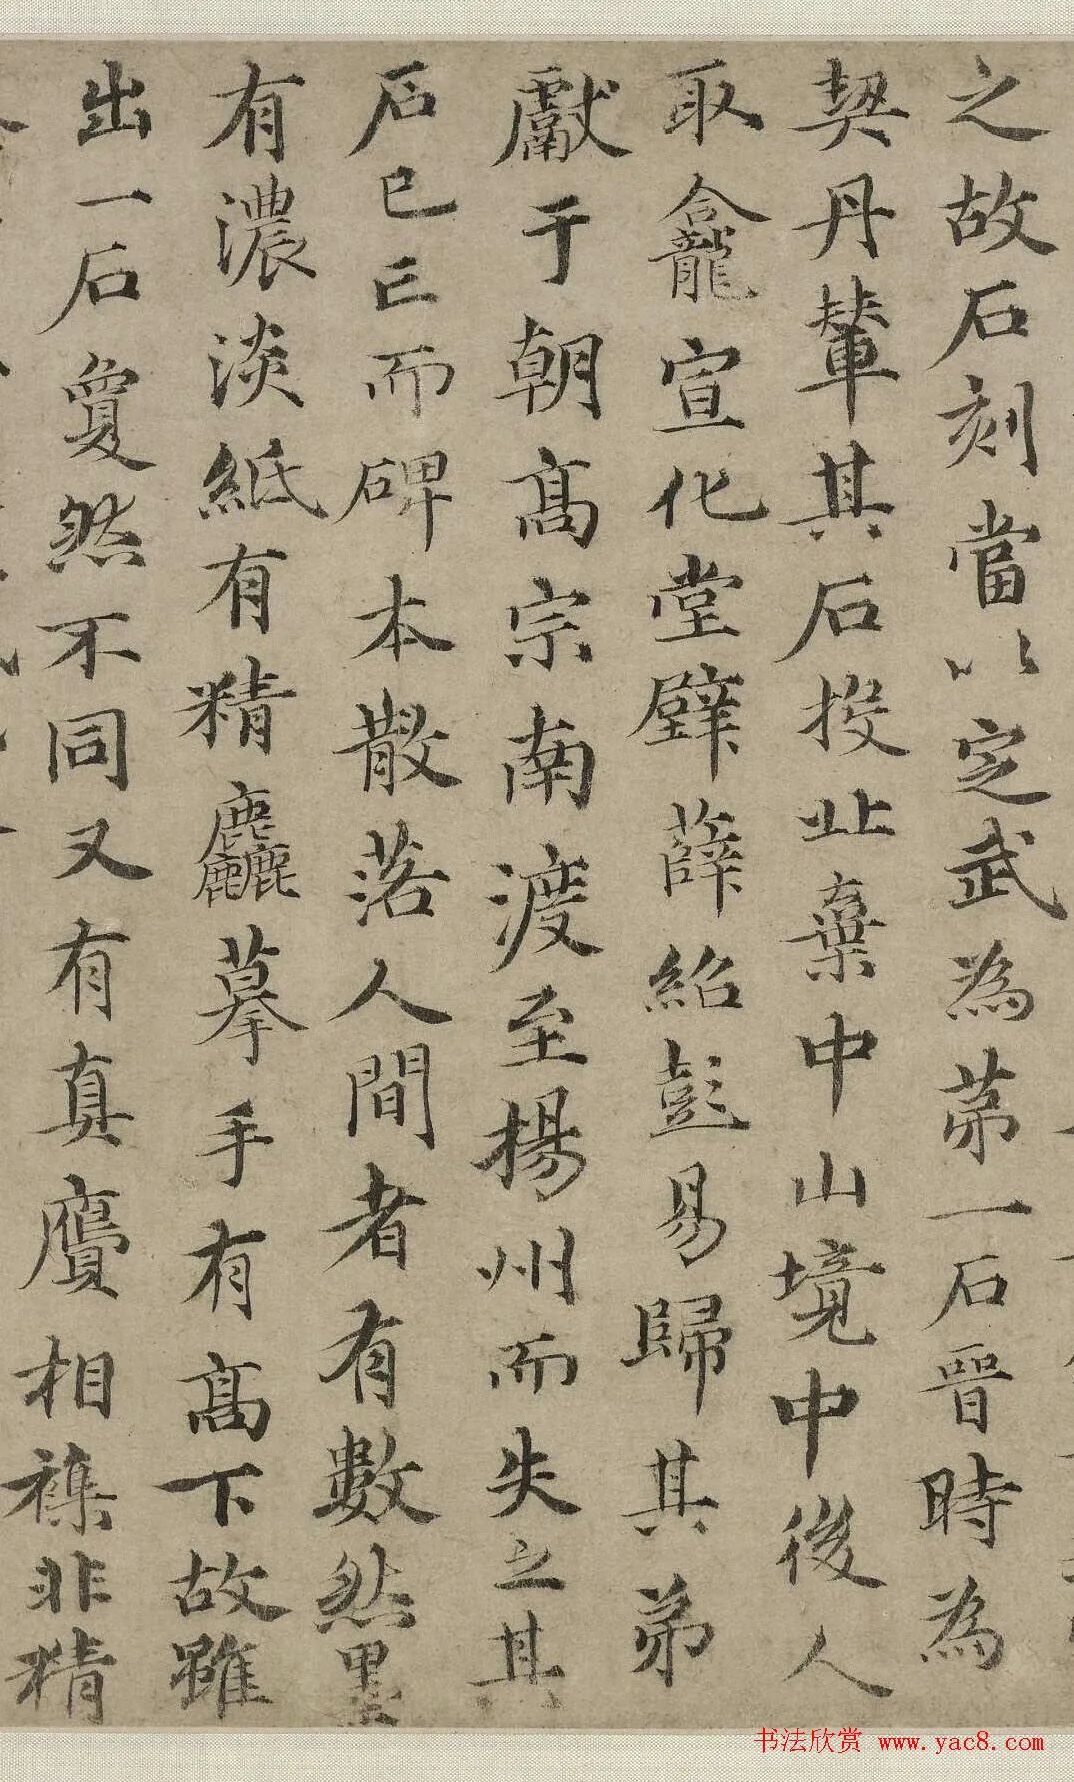 之故石刻當以定武為苐一石晉時為
契丹輦其石投北棄中山境中後人
取龕宣化堂壁薛紹彭易歸其弟
獻于朝髙宗南渡至揚州而失之其
石已亡而碑本散落人間者有數然墨
有濃淡紙有精麤摹手有髙下故雖
出一石夐然不同又有真贗相襍非精
书法欣赏 www.yac8.com